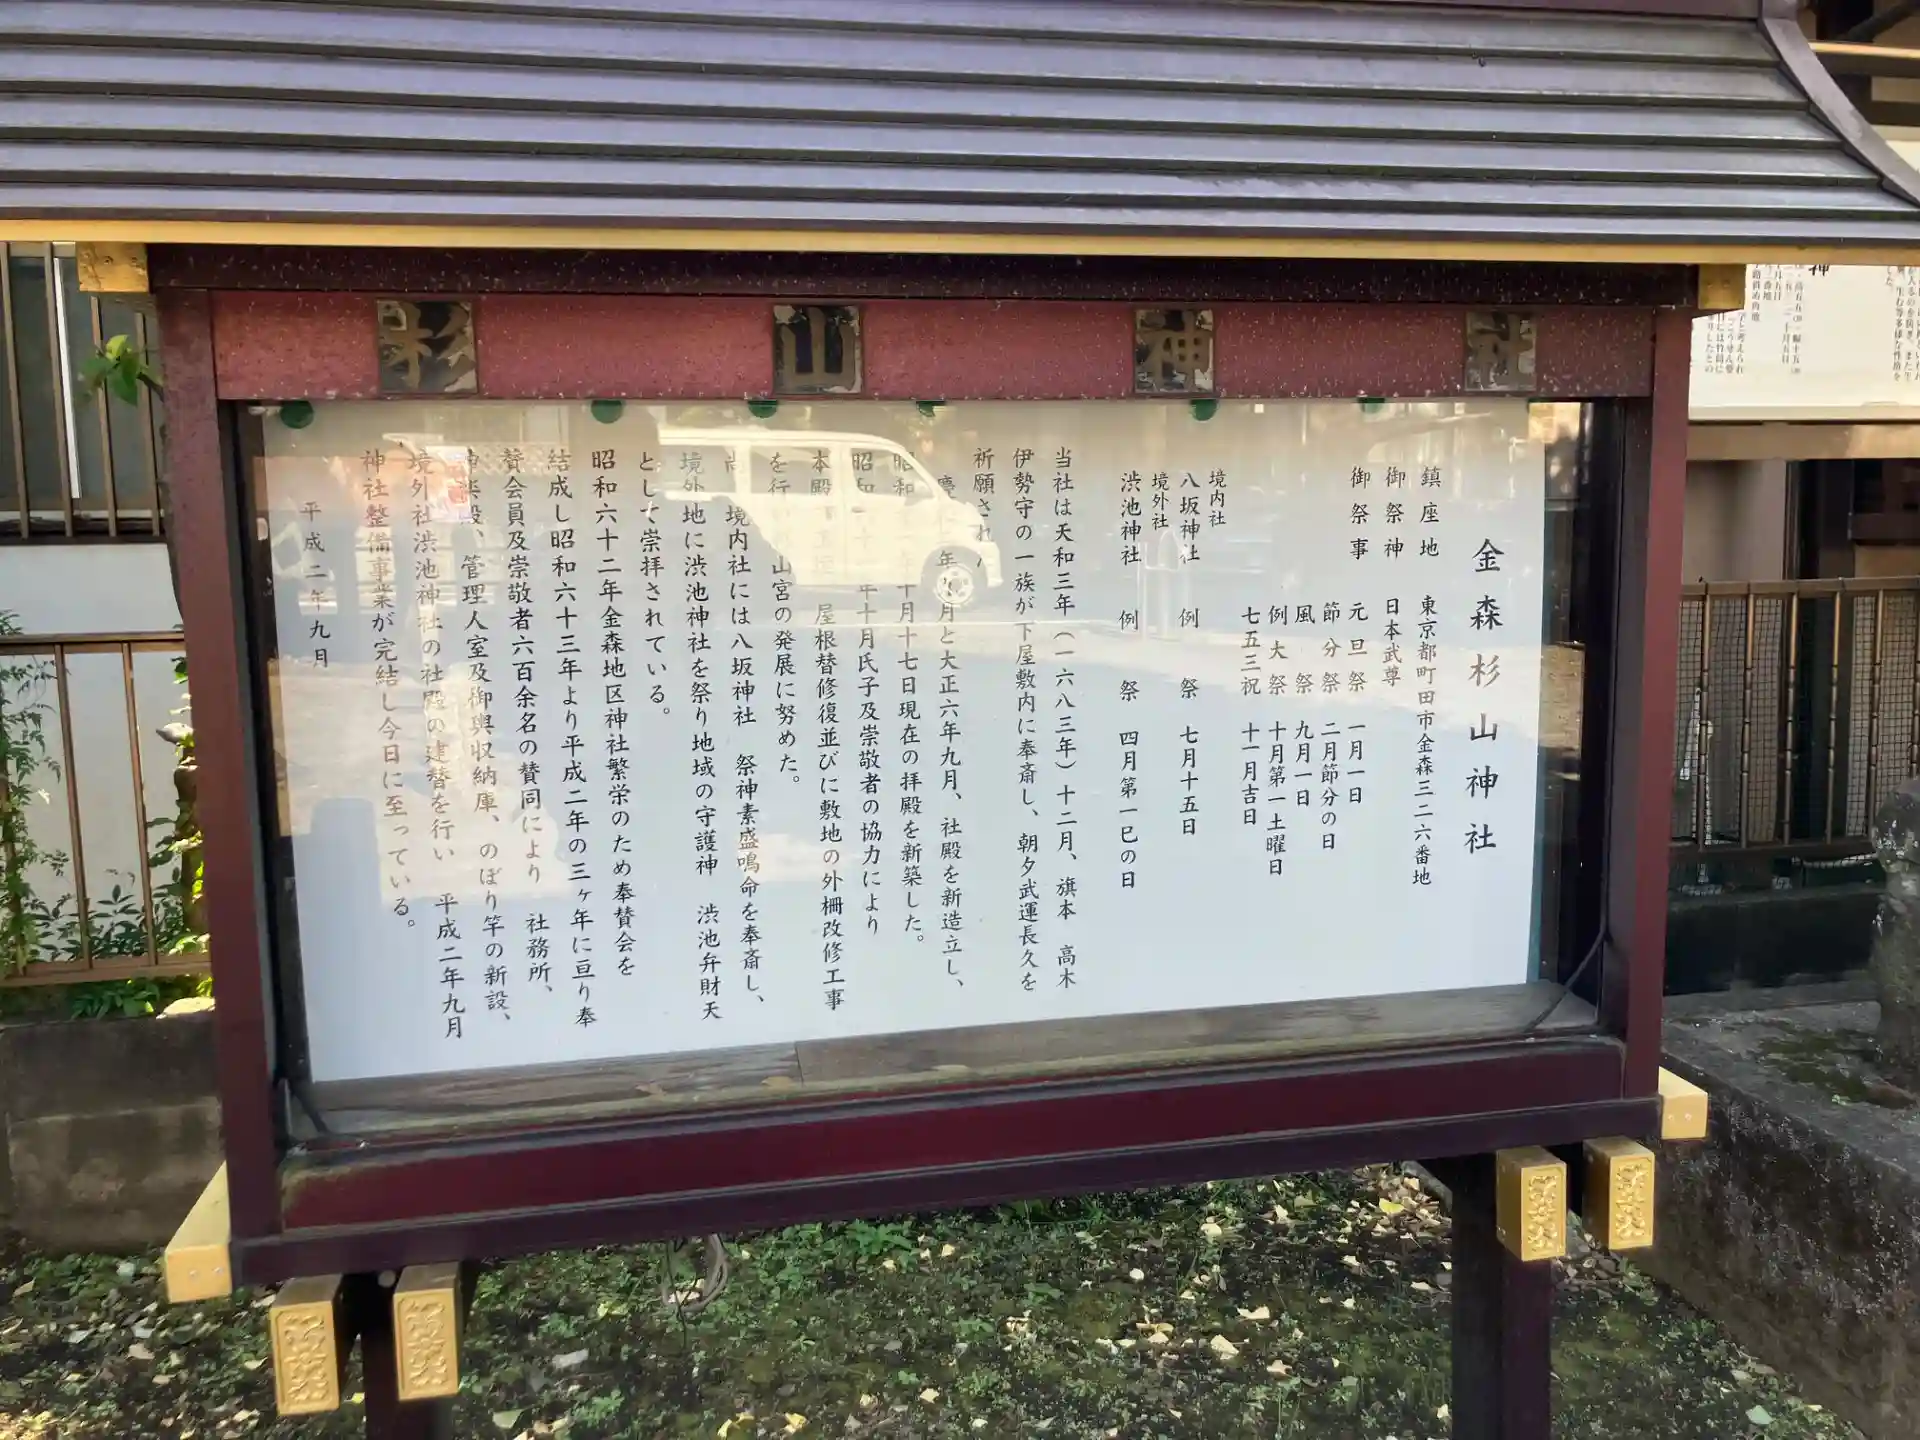 杉山神社
金森杉山神社
鎮座地 東京都町田市金森三二六番地
御祭神 日本武尊
御祭事 元旦祭 一月一日
節分祭 二月節分の日
風祭 九月一日
例大祭 十月第一土曜日
七五三祝 十一月吉日
境内社
八坂神社 例祭 七月十五日
境外社
渋池神社 例祭 四月第一巳の日
当社は天和三年(一六八三年)十二月、旗本 高木
伊勢守の一族が下屋敷内に奉斎し、朝夕武運長久を
祈願され
月と大正六年九月、社殿を新造立し、
昭和 十月十七日現在の拝殿を新築した。
昭和 年十月氏子及崇敬者の協力により
本殿 屋根替修復並びに敷地の外柵改修工事
を行 山宮の発展に努めた。
尚 境内社には八坂神社 祭神素盛鳴命を奉斎し、
境外地に渋池神社を祭り地域の守護神 渋池弁財天
として崇拝されている。
昭和六十二年金森地区神社繁栄のため奉賛会を
結成し昭和六十三年より平成二年の三ヶ年に亘り奉
賛会員及崇敬者六百余名の賛同により 社務所、
殿、管理人室及御輿収納庫、のぼり竿の新設、
境外社渋池神社の社殿の建替を行い 平成二年九月
神社整備事業が完結し今日に至っている。
平成二年九月